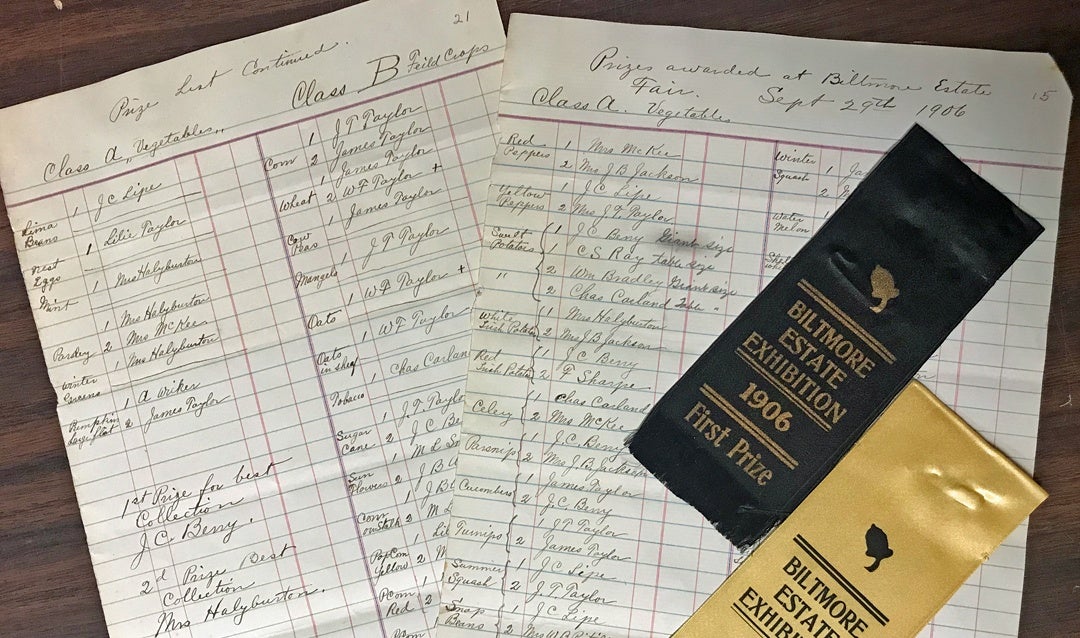 21
Prize List Continued.
Class B Feild Crops
Class A, Vegetables,,
Lima Beans 1 J C Lipe
1 Lilie Taylor
Nest Eggs
1 Mrs Halyburton
Mint
1 Mrs Halyburton
Parsley 2 Mrs McKee
Winter Greens 1 Mrs Halyburton
Pumpkin 1 A Wriker
Largest 2 James Taylor
1st Prize for best
Collection
J. C. Berry.
2d Prize Best
Collection
Mrs Halyburton.
Corn 1 J T Taylor
2 James Taylor
Wheat 1 James Taylor
2 W F Taylor +
Cow Peas 1 James Taylor
Mangels 1 J T Taylor
Oats 1 W F Taylor +
Oats in sheaf 1 W F Taylor
Tobacco 1 Chas Carlan
Sugar Cane 1 J. T. Taylo
2 J. C Be
Sun Flowers 1 M E S
2 J B
Corn on stalk 1 J B
2 M
PopCorn Yellow 1 Lil
2 M
PCorn Red 1
2
15
Prizes awarded at Biltmore Estate
Fair. Sept 29th 1906
Class A. Vegetables
Red Peppers 1 Mrs McKee
2 Mrs J B Jackson
Yellow Peppers 1 J. C. Lipe
2 Mrs J. T. Taylor
Sweet Potatoes 1 J C Berry Giant size
1 C. S Ray Table size
" 2 Wm Bradley Giant size
2 Chas Carland Table "
White Irish Potatoes 1 Mrs Halyburton
2 Mrs J B Jackson
Red Irish Potatoes 1 J. C Berry
2 F Sharpe
Celery 1 Chas Carland
2 Mrs McKee
Parsnips 1 J. C. Berry
2 Mrs J. B. Jackson
Cucumbers 1 James Taylor
2 J. C. Berry
Turnips 1 J T Taylor
2 James Taylor
Summer Squash 1 J. C Lipe
2 J. T Taylor
Snap Beans 1 J C Lipe
2 Mrs W
Winter Squash 1 Ja
2 J
Water Melon
BILTMORE
ESTATE
EXHIBITION
1906
First Prize
BILTMORE
ESTATE
EXHIBI